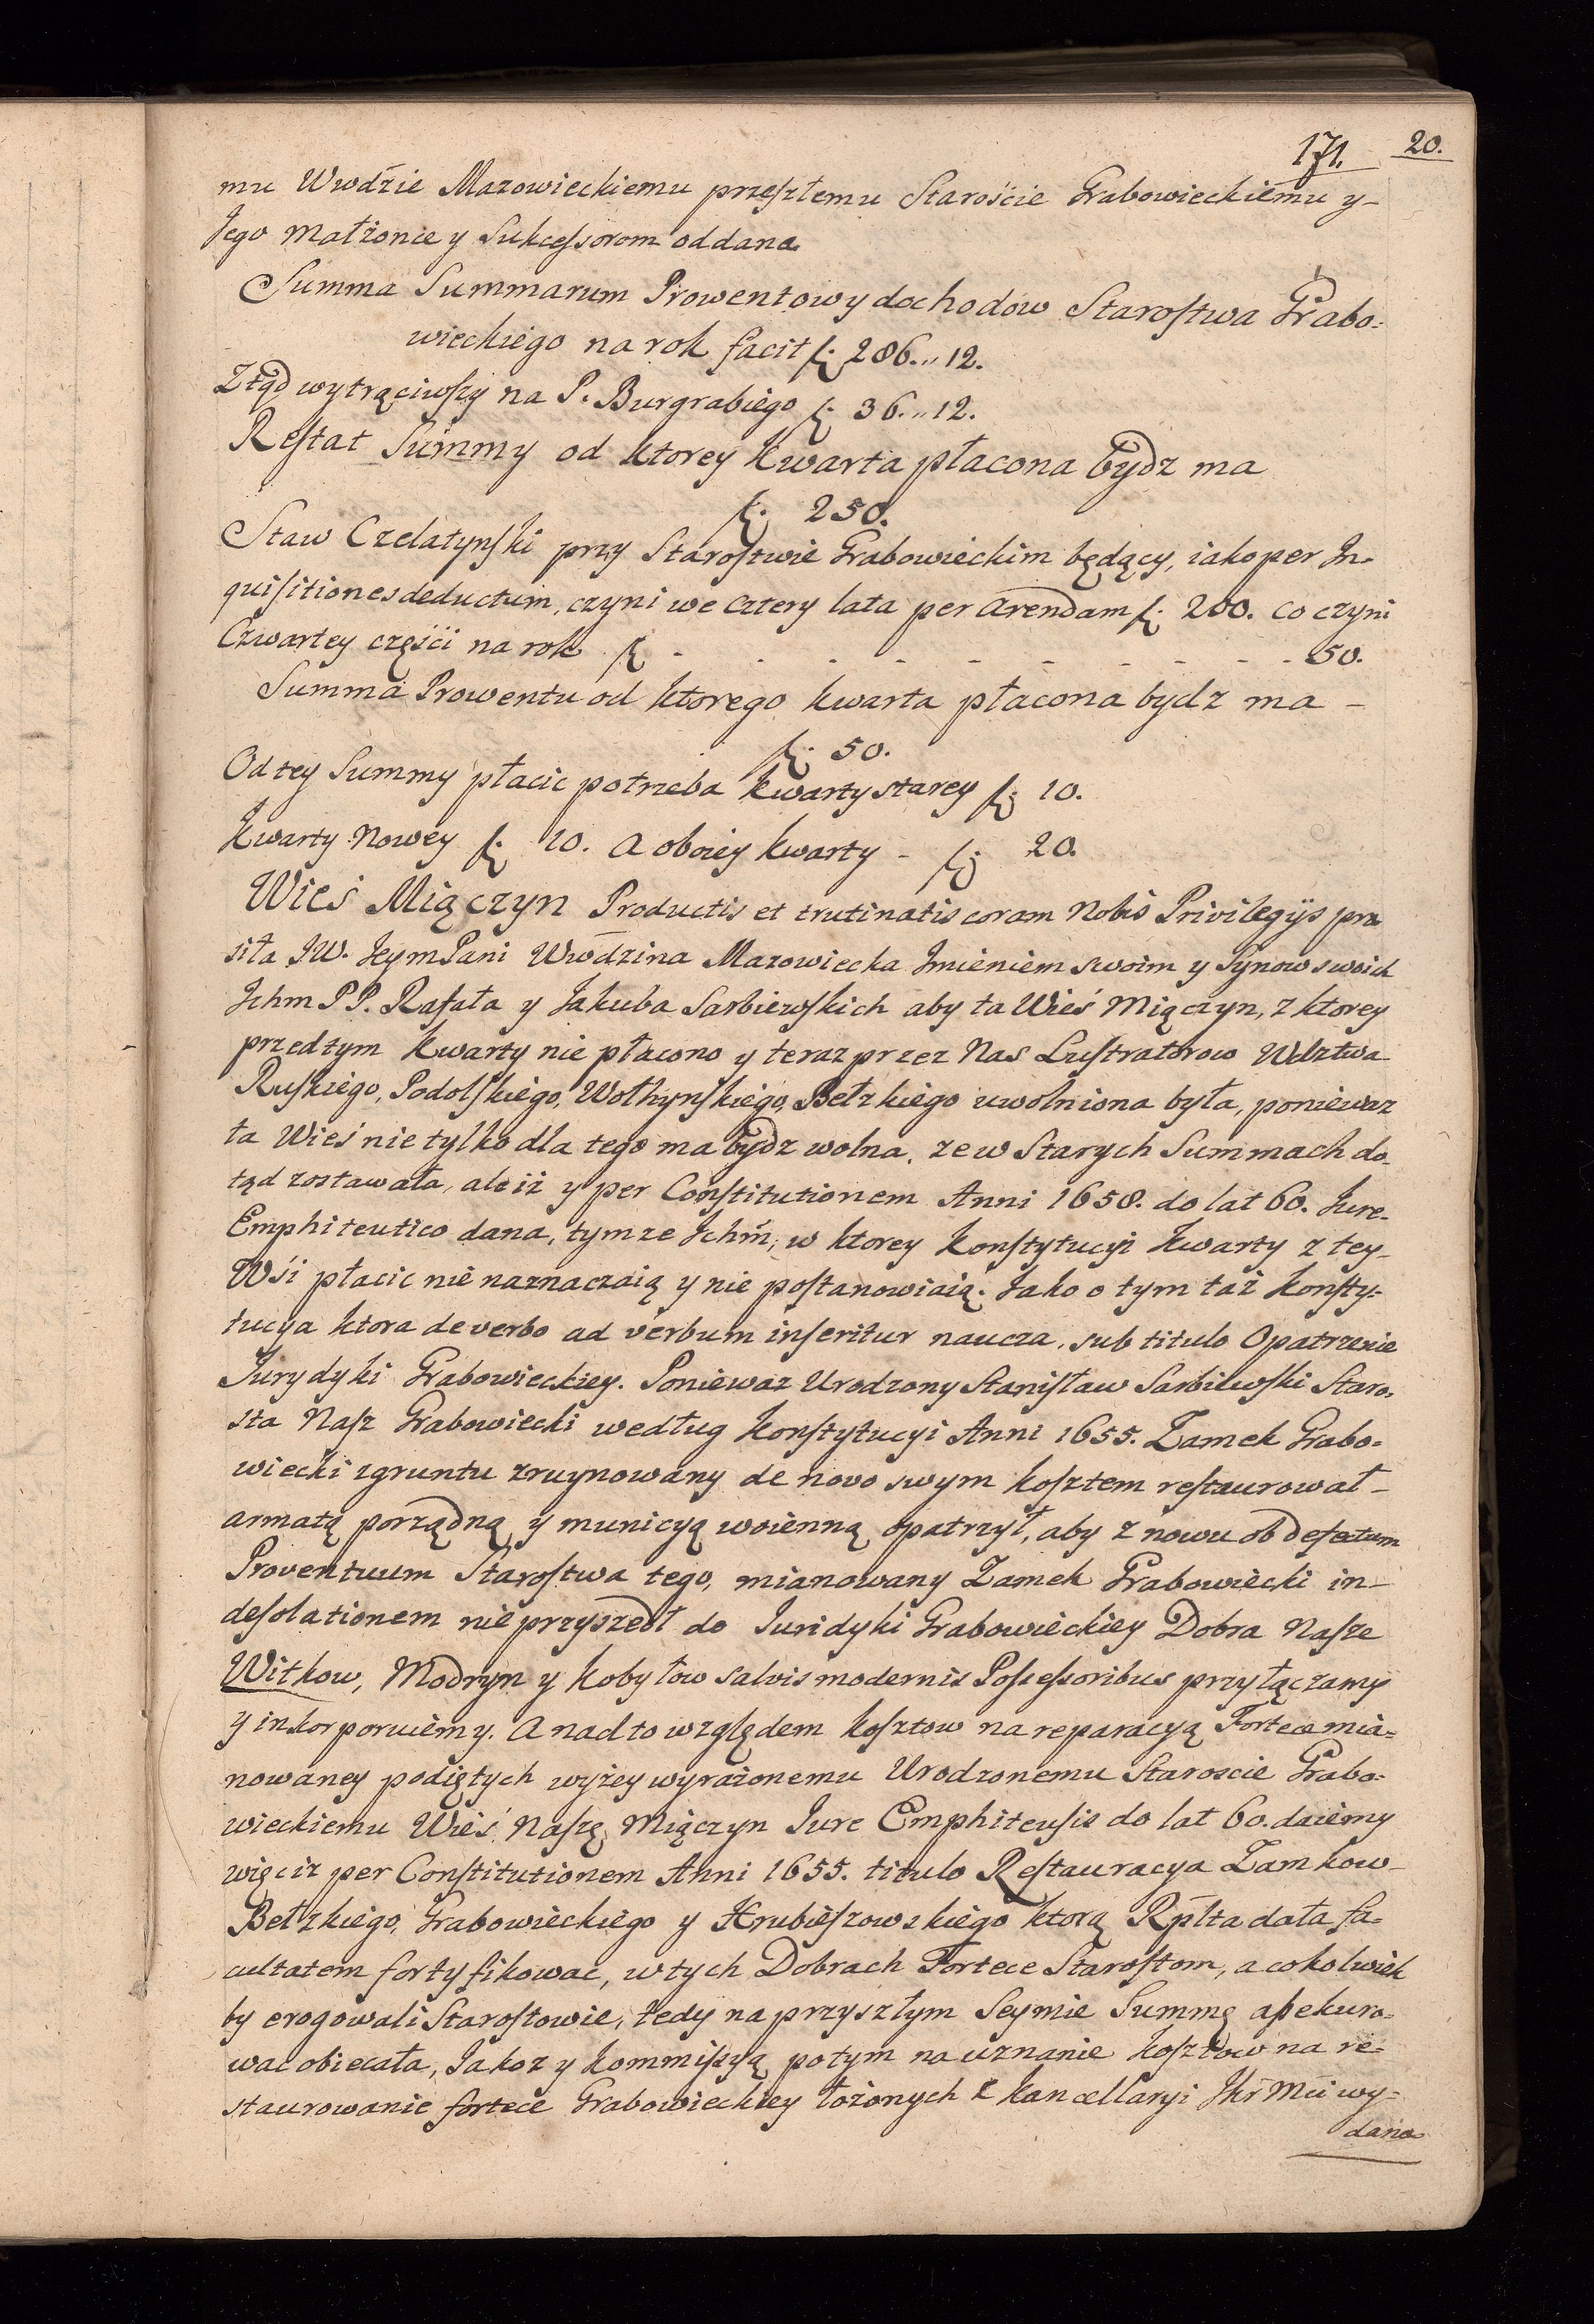 171. 20.
mu Wwdzie Mazowieckiemu przeszłemu Starościie Grabowieckiemu y-
Jego małżonce y Sukcessorom oddana
Summa Summarum Prowentow y dochodów Starostwa Grabo=
wieckiego na rok facit f. 286.,,12.
Ztąd wytrąciwszy na P. Burgrabiego f. 36.,,12.
Restat Summy od ktorey kwarta płacona bydz ma
f. 250.
Staw Czelatynski przy Starostwie Grabowieckim będący, iako per In-
quisitiones deductum, czyni we cztery lata per arendam f. 200. co czyni
Czwartey części na rok f - - - - - - - - - 50.
Summa Prowentu od ktorego kwarta płacona bydz ma -
f. 50.
Od tey Summy płacic potrzeba kwarty starey f. 10.
Kwarty Nowey f. 10. a oboiey kwarty - f. 20.
Wieś Miączyn Productis et trutinatis coram Nobis Privilegijs pro
siła JW. JeymPani Wwodzina Mazowiecka Imieniem swoim y Synow swoich
Ichm PP. Rafała y Jakuba Sarbiewskich aby ta Wieś Miączyn, z ktorey
przedtym kwarty nie płacono y teraz przez Nas Lustratorow Wdztwa
Ruskiego, Podolskiego, Wołhynskiego, Bełzkiego uwolniona była, poniewaz
ta Wieś nie tylko dla tego ma bydz wolna, ze w Starych Summach do-
tąd zostawała, ale iż y per Constitutionem Anni 1658. do lat 60. Jure-
Emphiteutico dana, tymze Ichm, w ktorey Konstytucyi Kwarty z tey-
Wśi płacic nie naznaczaią y nie postanowiaią. Jako o tym taż Konsty=
tucya ktora de verbo ad verbum inseritur naucza, sub titulo Opatrzenie
Jurydyki Grabowieckiey. Poniewaz Urodzony Stanisław Sarbiewski Staro-
sta Nasz Grabowiecki według Konstytucyi Anni 1655. Zamek Grabo=
wiecki z gruntu zruynowany de novo swym kosztem restaurował -
armatą porządną y municyą woienną opatrzył, aby z nowu ob defectum
Proventuum Starostwa tego, mianowany Zamek Grabowiecki in-
desolationem nie przyszedł do Juridyki Grabowieckiey Dobra Nasze
Witkow, Modryn y Kobyłow salvis modernis Possessoribus przyłączamy
y inkorporuiemy. A nad to względem kosztow na reparacyą Fortece mia=
nowaney podiętych wyżey wyrażonemu Urodzonemu Staroscie Grabo=
wieckiemu Wieś Naszę Miączyn Jure Emphiteusis do lat 60. daiemy
więc iz per Constitutionem Anni 1655. titulo Restauracya Zamkow-
Bełzkiego, Grabowieckiego y Hrubieszowskiego ktorą Rplta dała fa=
cultatem fortyfikowac, w tych Dobrach Fortece Starostom, a cokolwiek
by erogowali Starostowie, tedy na przyszłym Seymie Summę assekuro=
wac obiecała, Jakoz y Kommissyą potym na uznanie kosztow na re=
staurowanie fortece Grabowieckiey łożonych z Kancellaryi JKr Mci wy=
dana